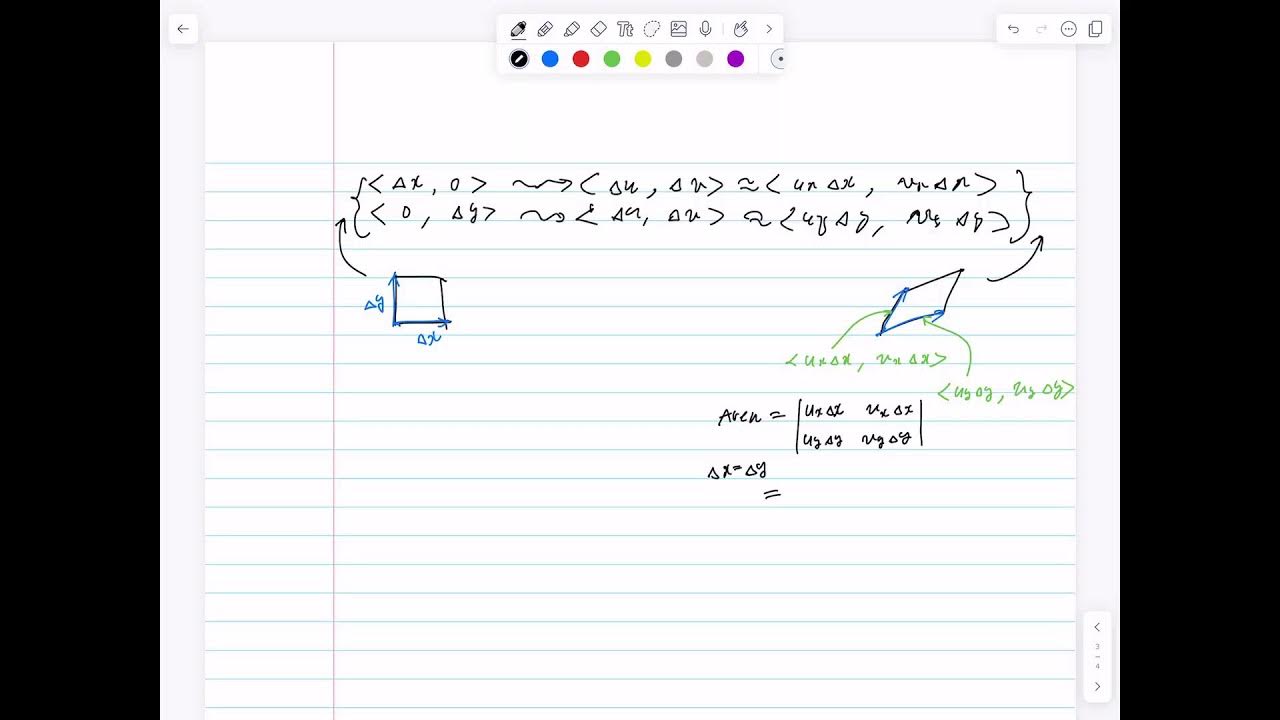 <Δx, 0> ⇝ <Δu, Δv> ≈ <uₓΔx, vₓΔx>
<0, Δy> ⇝ <Δu, Δv> ≈ <u_yΔy, v_yΔy>
Δy
Δx
<uₓΔx, vₓΔx>
<u_yΔy, v_yΔy>
Area = | uₓΔx vₓΔx |
| u_yΔy v_yΔy |
Δx=Δy
=
Tt
3
4